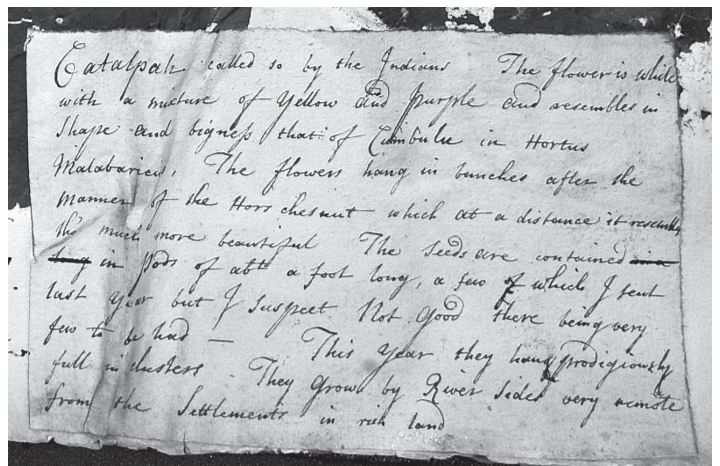 Catalpah called so by the Indians The flower is white
with a mixture of Yellow and purple and resembles in
Shape and bigness that of Cumbulu in Hortus
Malabaricus, The flowers hang in bunches after the
manner of the Hors chesnut which at a distance it resembles
tho much more beautiful The Seeds are contained in a
long in pods of abt a foot long, a few of which I sent
last year but I suspect Not Good there being very
few to be had — This year they hang prodigiously
full in clusters They Grow by River Sides very remote
from the Settlements in rich land